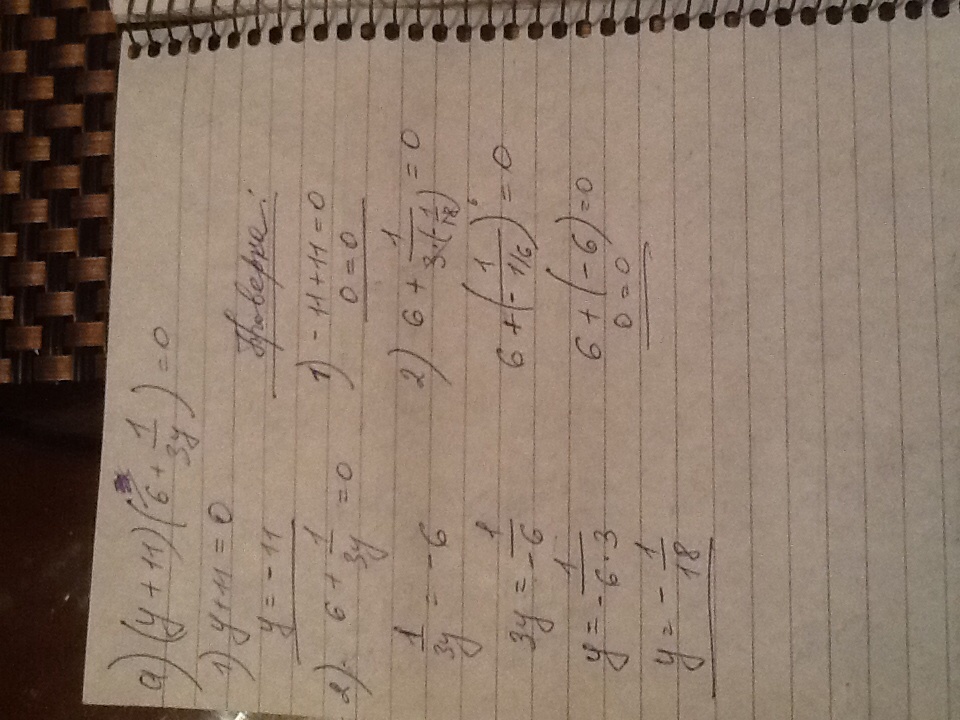 а) (y + 11)(6 + 1/3y) = 0
1) y + 11 = 0
y = -11
2) 6 + 1/3y = 0
1/3y = -6
3y = 1/-6
y = 1/-6·3
y = - 1/18
Проверка:
1) -11 + 11 = 0
0 = 0
2) 6 + 1/3·(-1/18) = 0
6 + (1/-1/6) = 0
6 + (-6) = 0
0 = 0